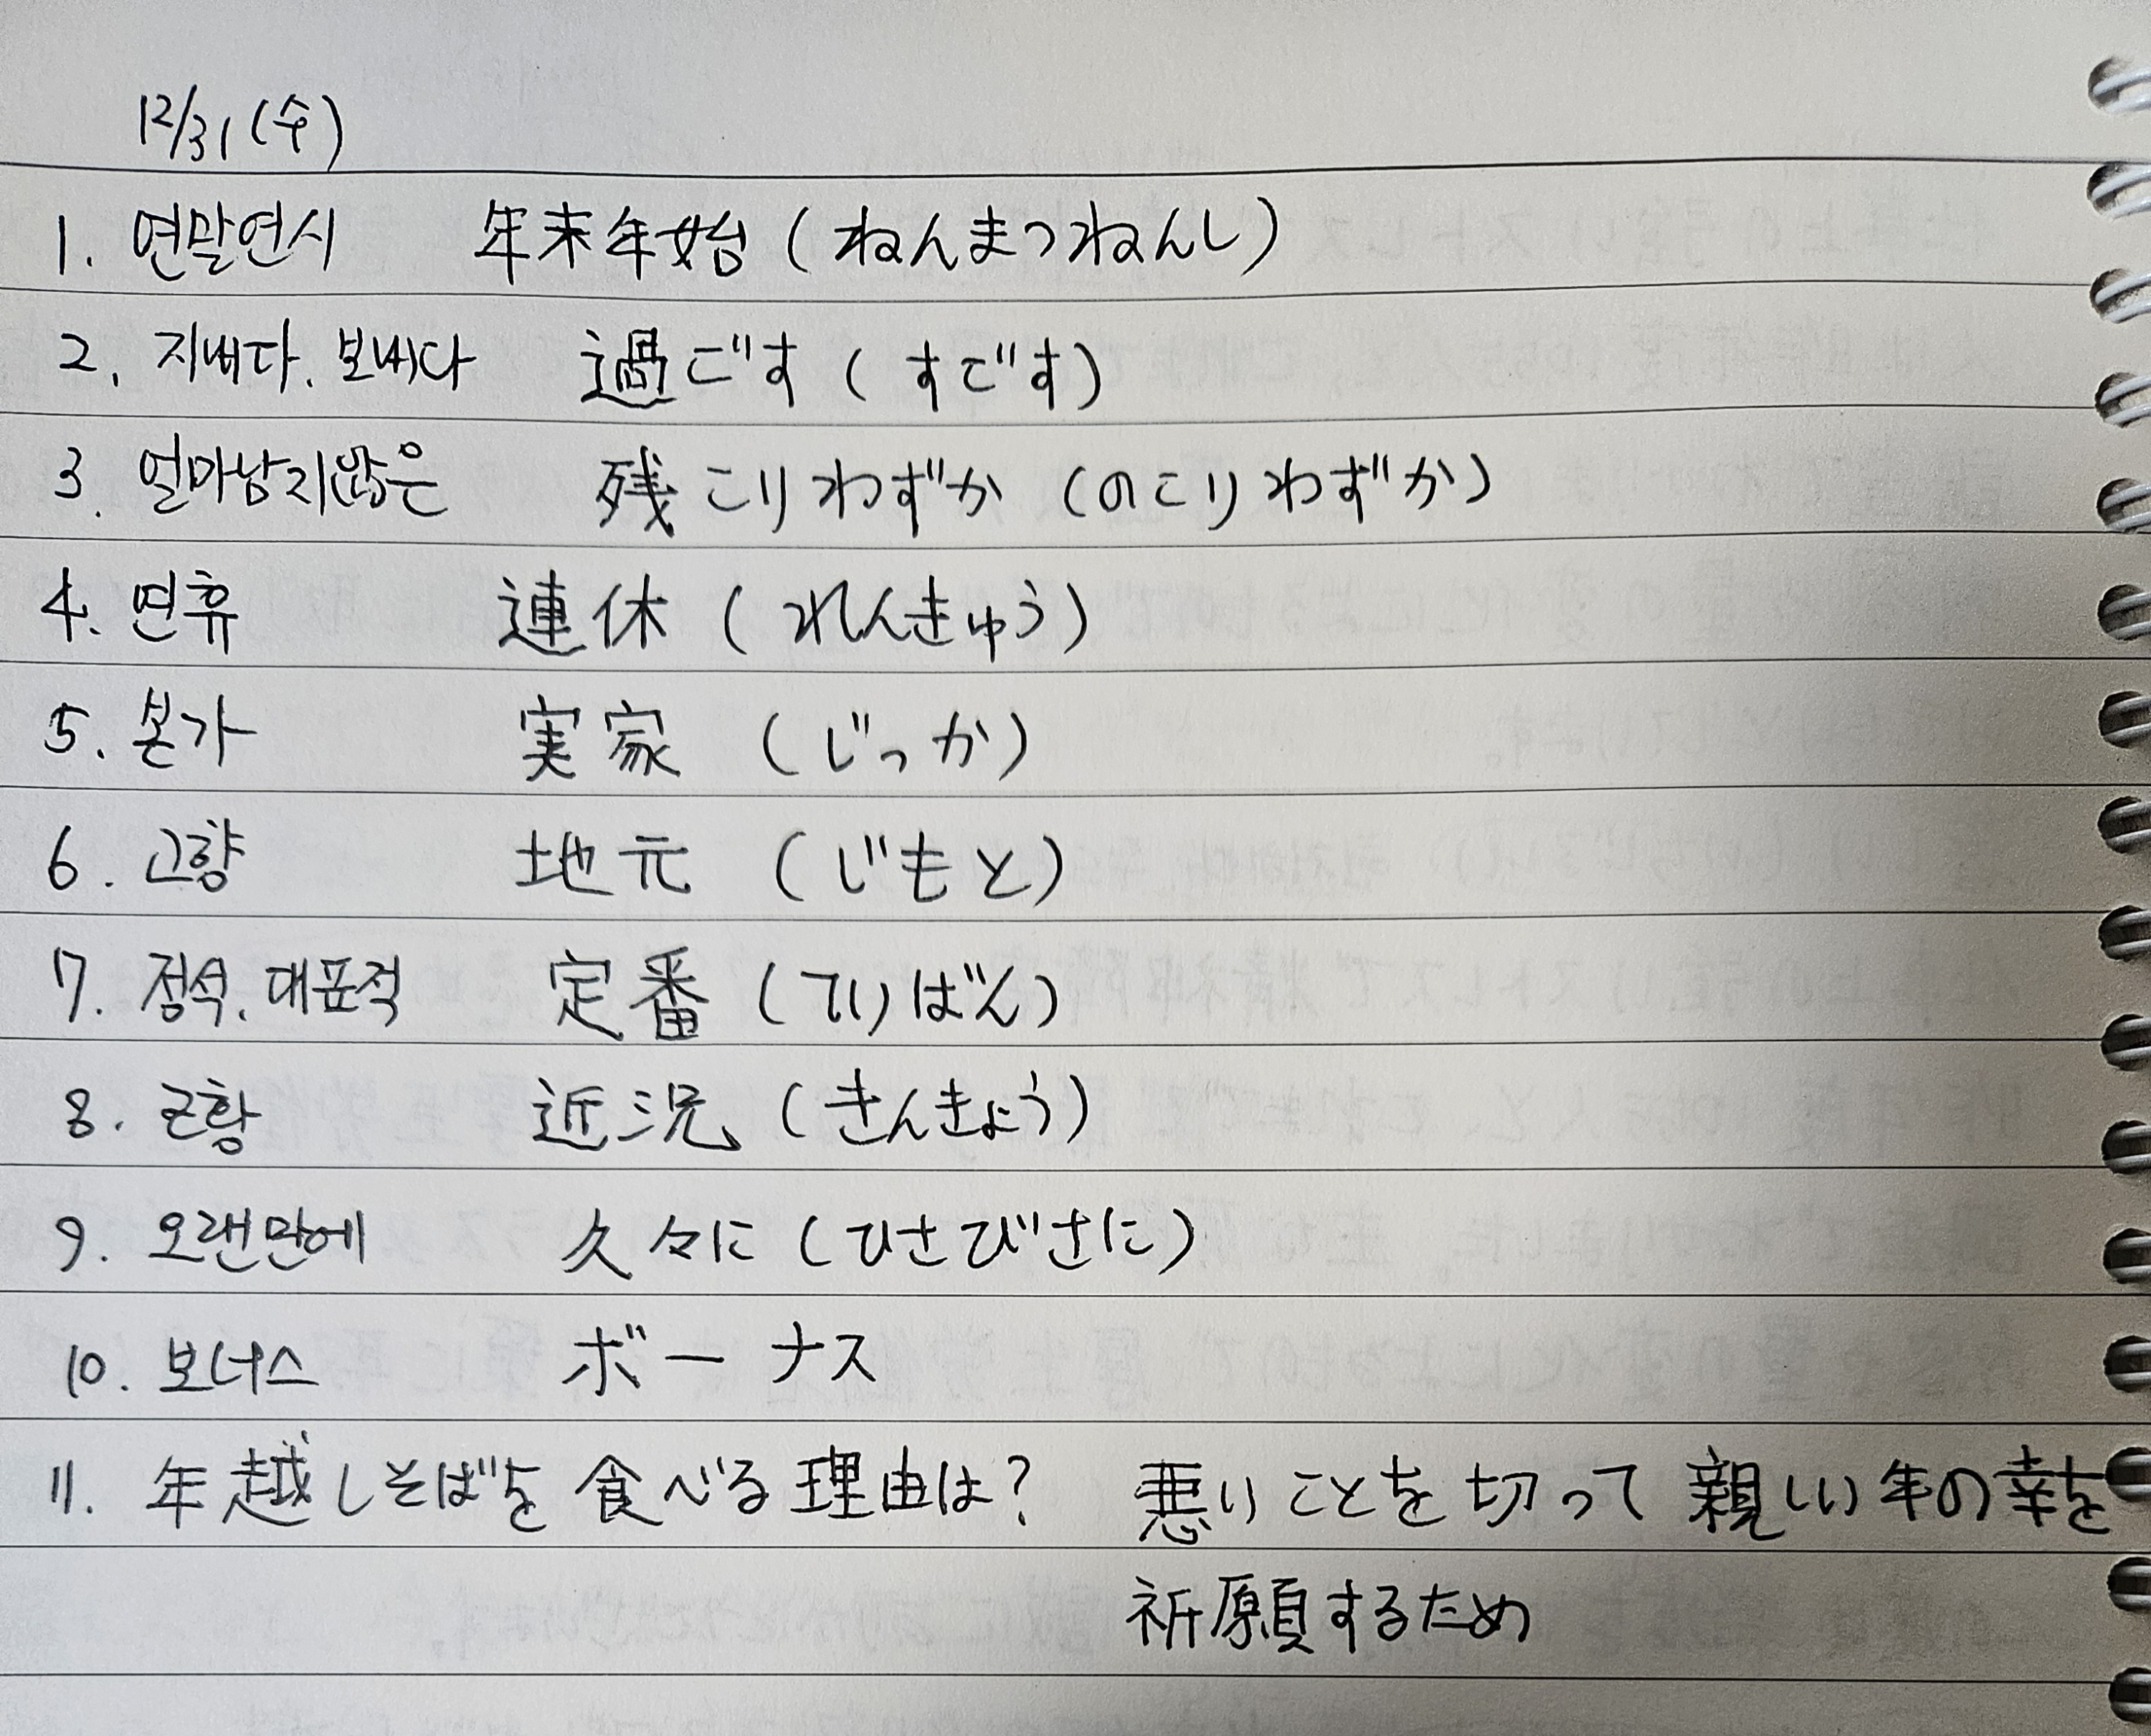 12/31 (수)
1. 연말연시 年末年始 (ねんまつねんし)
2. 지내다. 보내다 過ごす (すごす)
3. 얼마남지않은 残こりわずか (のこりわずか)
4. 연휴 連休 (れんきゅう)
5. 본가 実家 (じっか)
6. 고향 地元 (じもと)
7. 정석. 대표적 定番 (ていばん)
8. 근황 近況 (きんきょう)
9. 오랜만에 久々に (ひさびさに)
10. 보너스 ボーナス
11. 年越しそばを食べる理由は? 悪いことを切って親しい年の幸を
祈願するため